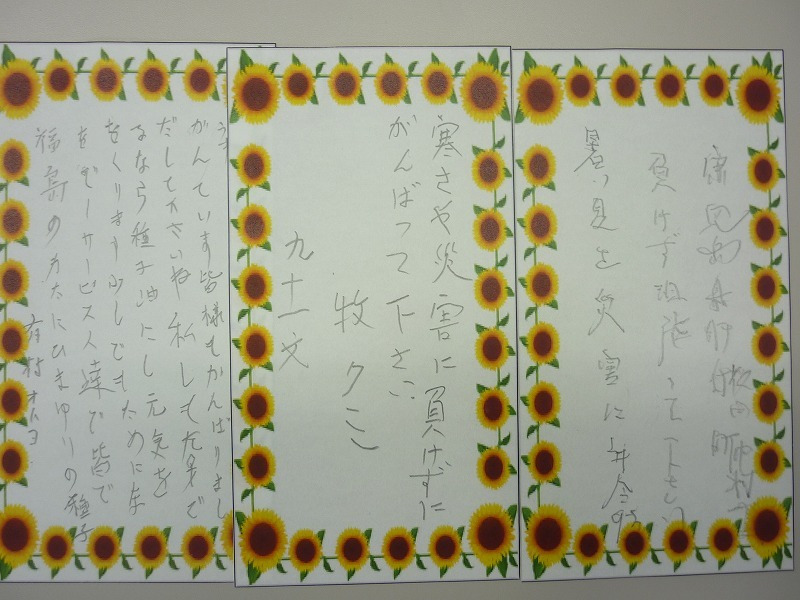 暑い夏と災害に
負けず頑張って下さい
寒さや災害に負けずに
がんばって下さい
牧クミ
九十一文
福島のかたにひまゆりの種子
をデーサービス人達で皆で
をくります少しでもためにな
るなら種子油にし元気を
だして下さいね私しも左身で
がんています皆様もがんばりまし
有村オトヨ